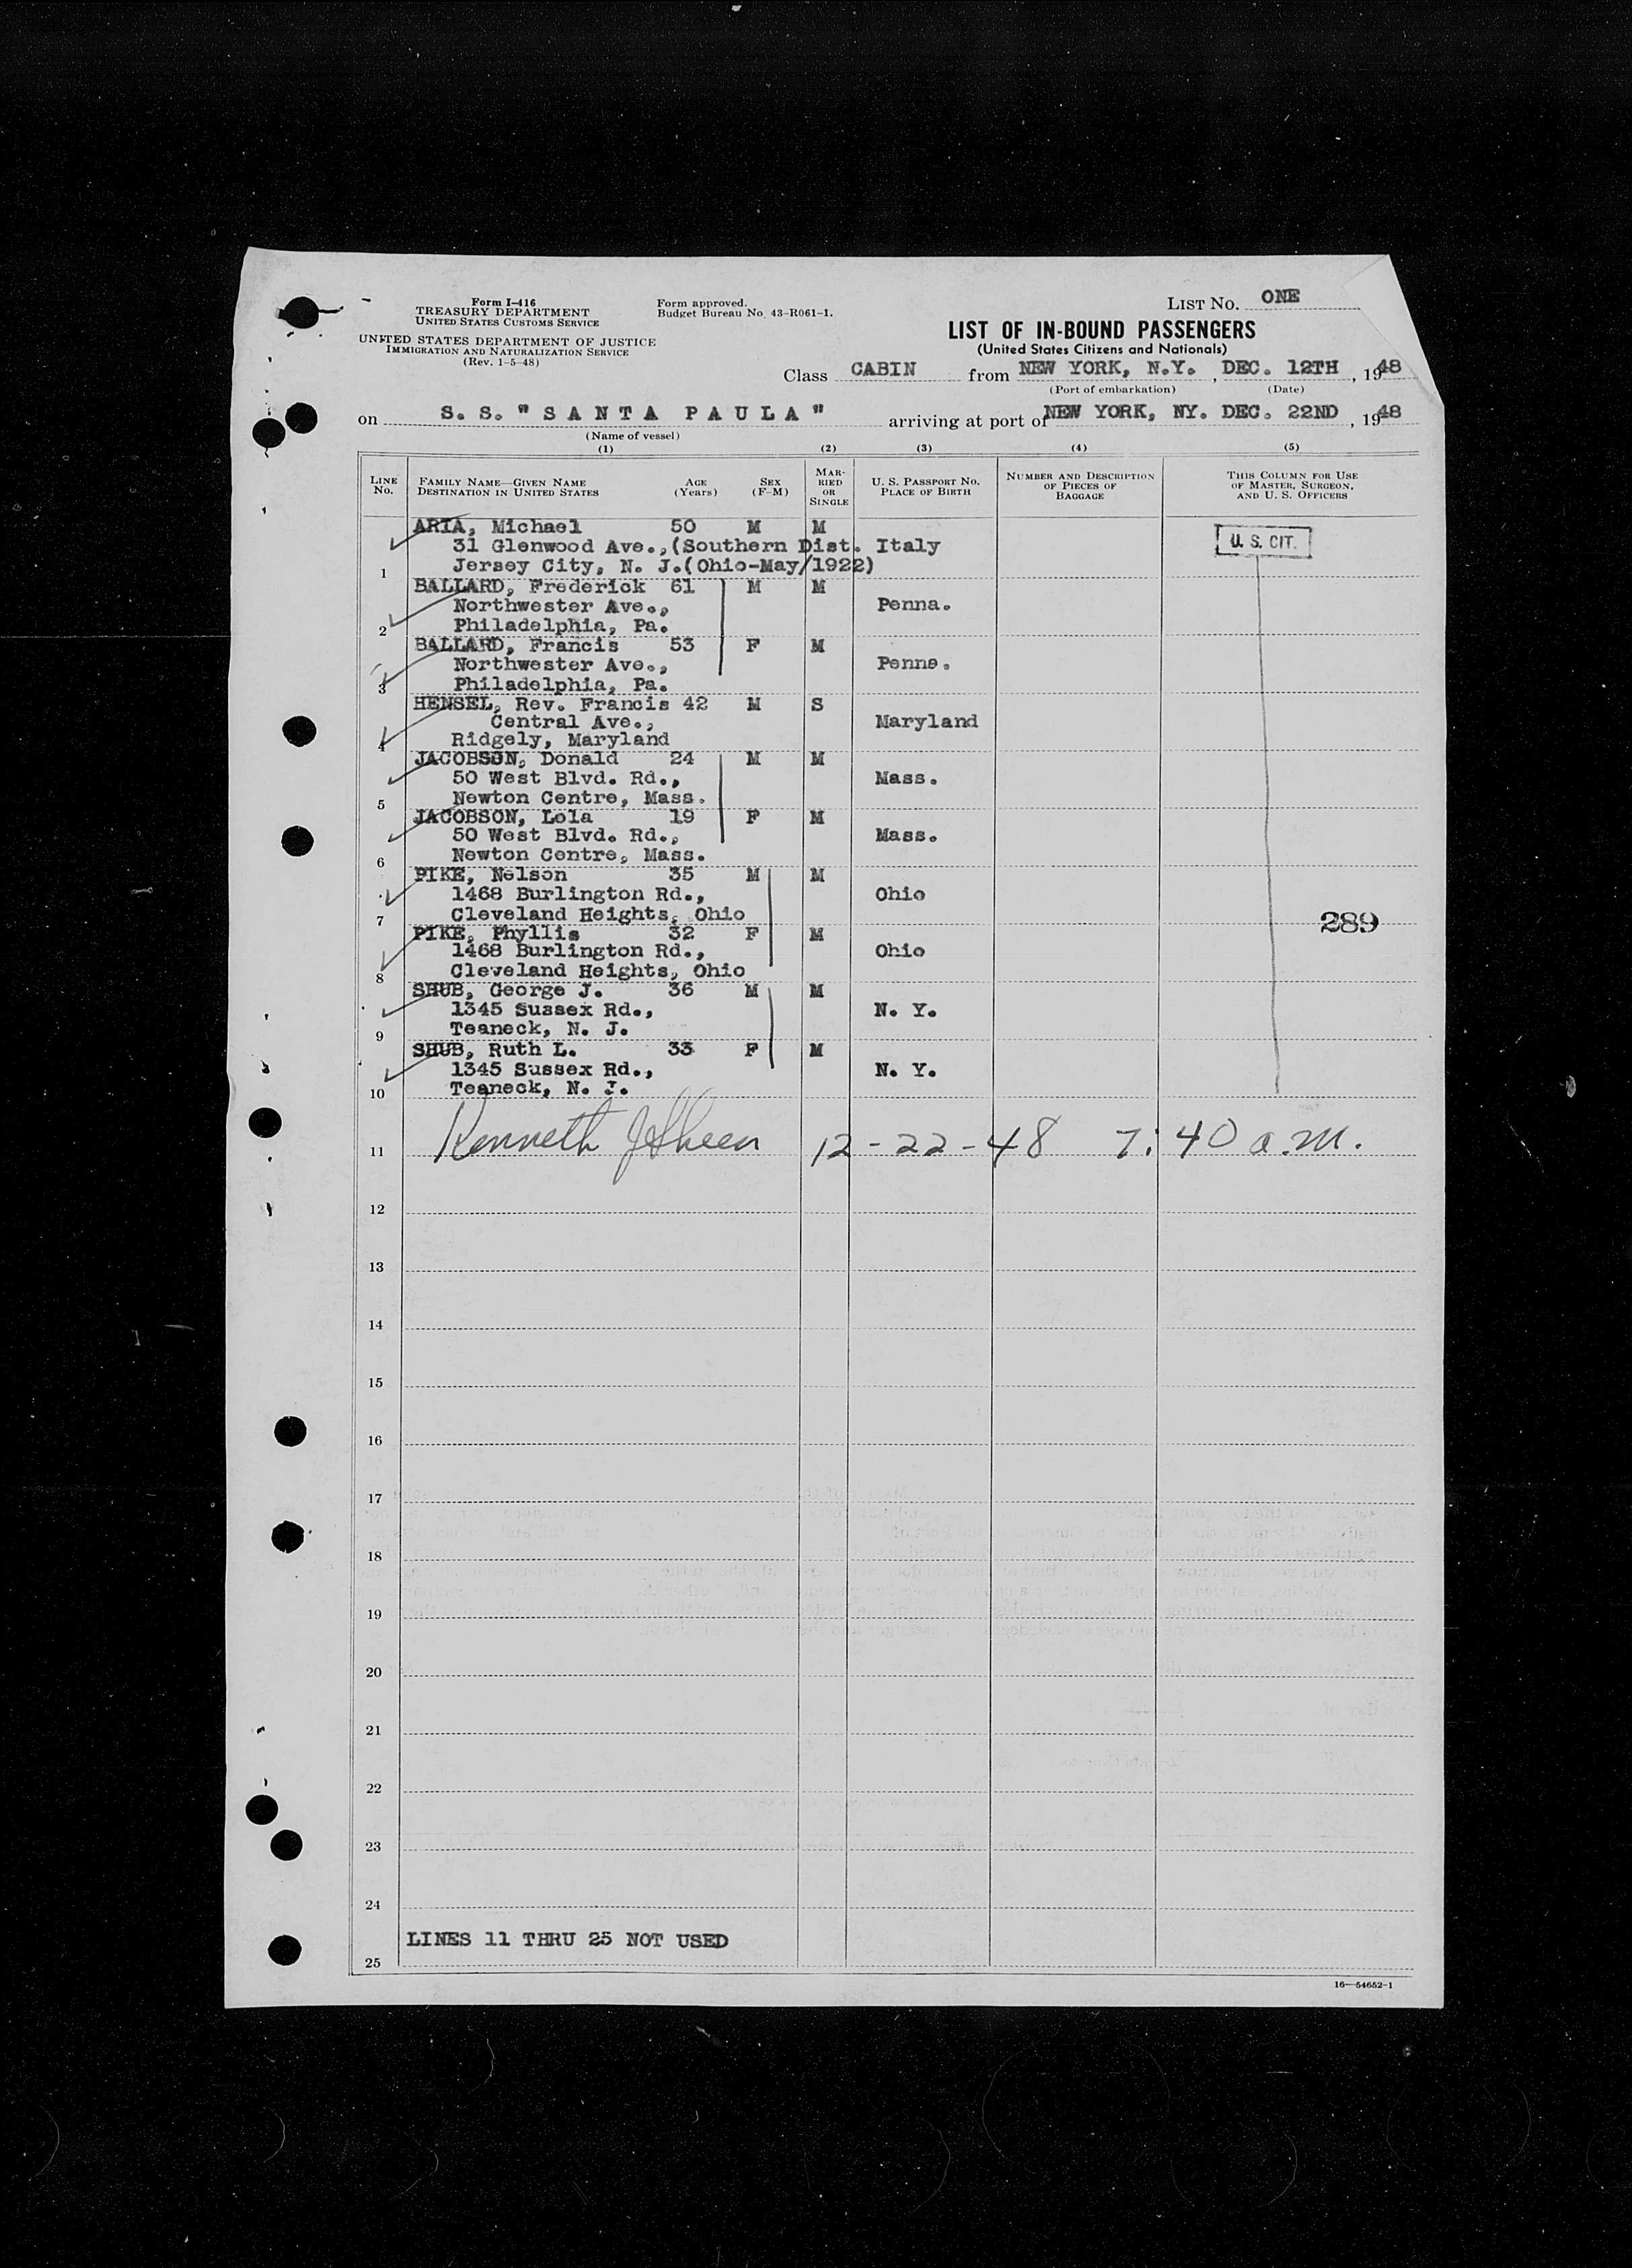 Form I-416
TREASURY DEPARTMENT
UNITED STATES CUSTOMS SERVICE
UNITED STATES DEPARTMENT OF JUSTICE
IMMIGRATION AND NATURALIZATION SERVICE
(Rev. 1-5-48)
Form approved.
Budget Bureau No. 43-R061-1.
LIST No. ONE
LIST OF IN-BOUND PASSENGERS
(United States Citizens and Nationals)
Class CABIN from NEW YORK, N.Y. , DEC. 12TH , 1948
(Port of embarkation) (Date)
on S. S. "S A N T A  P A U L A" arriving at port of NEW YORK, NY. DEC. 22ND , 1948
(Name of vessel)
(1) (2) (3) (4) (5)
LINE No. FAMILY NAME—GIVEN NAME DESTINATION IN UNITED STATES AGE (Years) SEX (F-M) MARRIED OR SINGLE U. S. PASSPORT No. PLACE OF BIRTH NUMBER AND DESCRIPTION OF PIECES OF BAGGAGE THIS COLUMN FOR USE OF MASTER, SURGEON, AND U. S. OFFICERS
ARIA, Michael 50 M M
31 Glenwood Ave.,(Southern Dist. Italy U. S. CIT.
1 Jersey City, N. J.(Ohio-May/1922)
BALLARD, Frederick 61 M M
Northwester Ave., Penna.
2 Philadelphia, Pa.
BALLARD, Francis 53 F M
Northwester Ave., Penna.
3 Philadelphia, Pa.
HENSEL, Rev. Francis 42 M S
Central Ave., Maryland
4 Ridgely, Maryland
JACOBSON, Donald 24 M M
50 West Blvd. Rd., Mass.
5 Newton Centre, Mass.
JACOBSON, Lola 19 F M
50 West Blvd. Rd., Mass.
6 Newton Centre, Mass.
PIKE, Nelson 35 M M
1468 Burlington Rd., Ohio
7 Cleveland Heights, Ohio 289
PIKE, Phyllis 32 F M
1468 Burlington Rd., Ohio
8 Cleveland Heights, Ohio
SHUB, George J. 36 M M
1345 Sussex Rd., N. Y.
9 Teaneck, N. J.
SHUB, Ruth L. 33 F M
1345 Sussex Rd., N. Y.
10 Teaneck, N. J.
11 Kenneth 12-22-48 7:40 a.m.
12
13
14
15
16
17
18
19
20
21
22
23
24
LINES 11 THRU 25 NOT USED
25
16—54652-1